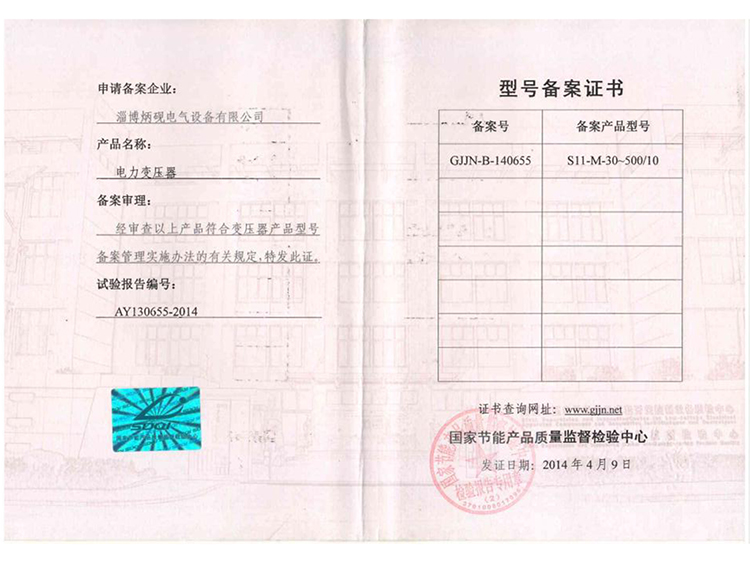 申请备案企业：
淄博炳砚电气设备有限公司
产品名称：
电力变压器
备案审理：
经审查以上产品符合变压器产品型号
备案管理实施办法的有关规定，特发此证。
试验报告编号：
AY130655-2014
SDQI
型号备案证书
备案号 备案产品型号
GJJN-B-140655 S11-M-30~500/10
证书查询网址：www.gjjn.net
国家节能产品质量监督检验中心
发证日期：2014年4月9日
检验报告专用章
(2)